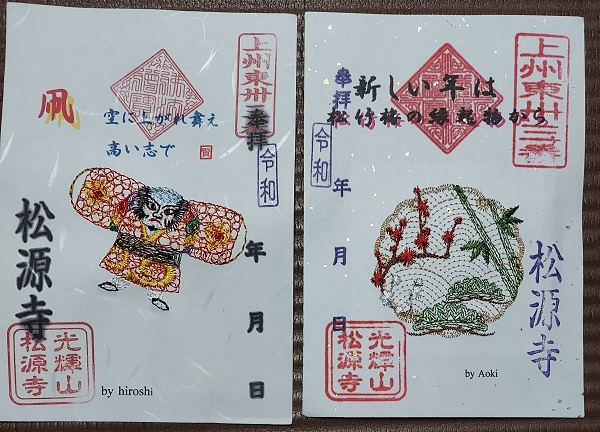 上州東州
奉拝
凧
空に上がれ舞え
高い志で
令和
年
月
日
松源寺
光輝山
松源寺
by hiroshi
上州東州三三番
奉拝
新しい年は
松竹梅の縁起物から
令和
年
月
日
松源寺
光輝山
松源寺
by Aoki